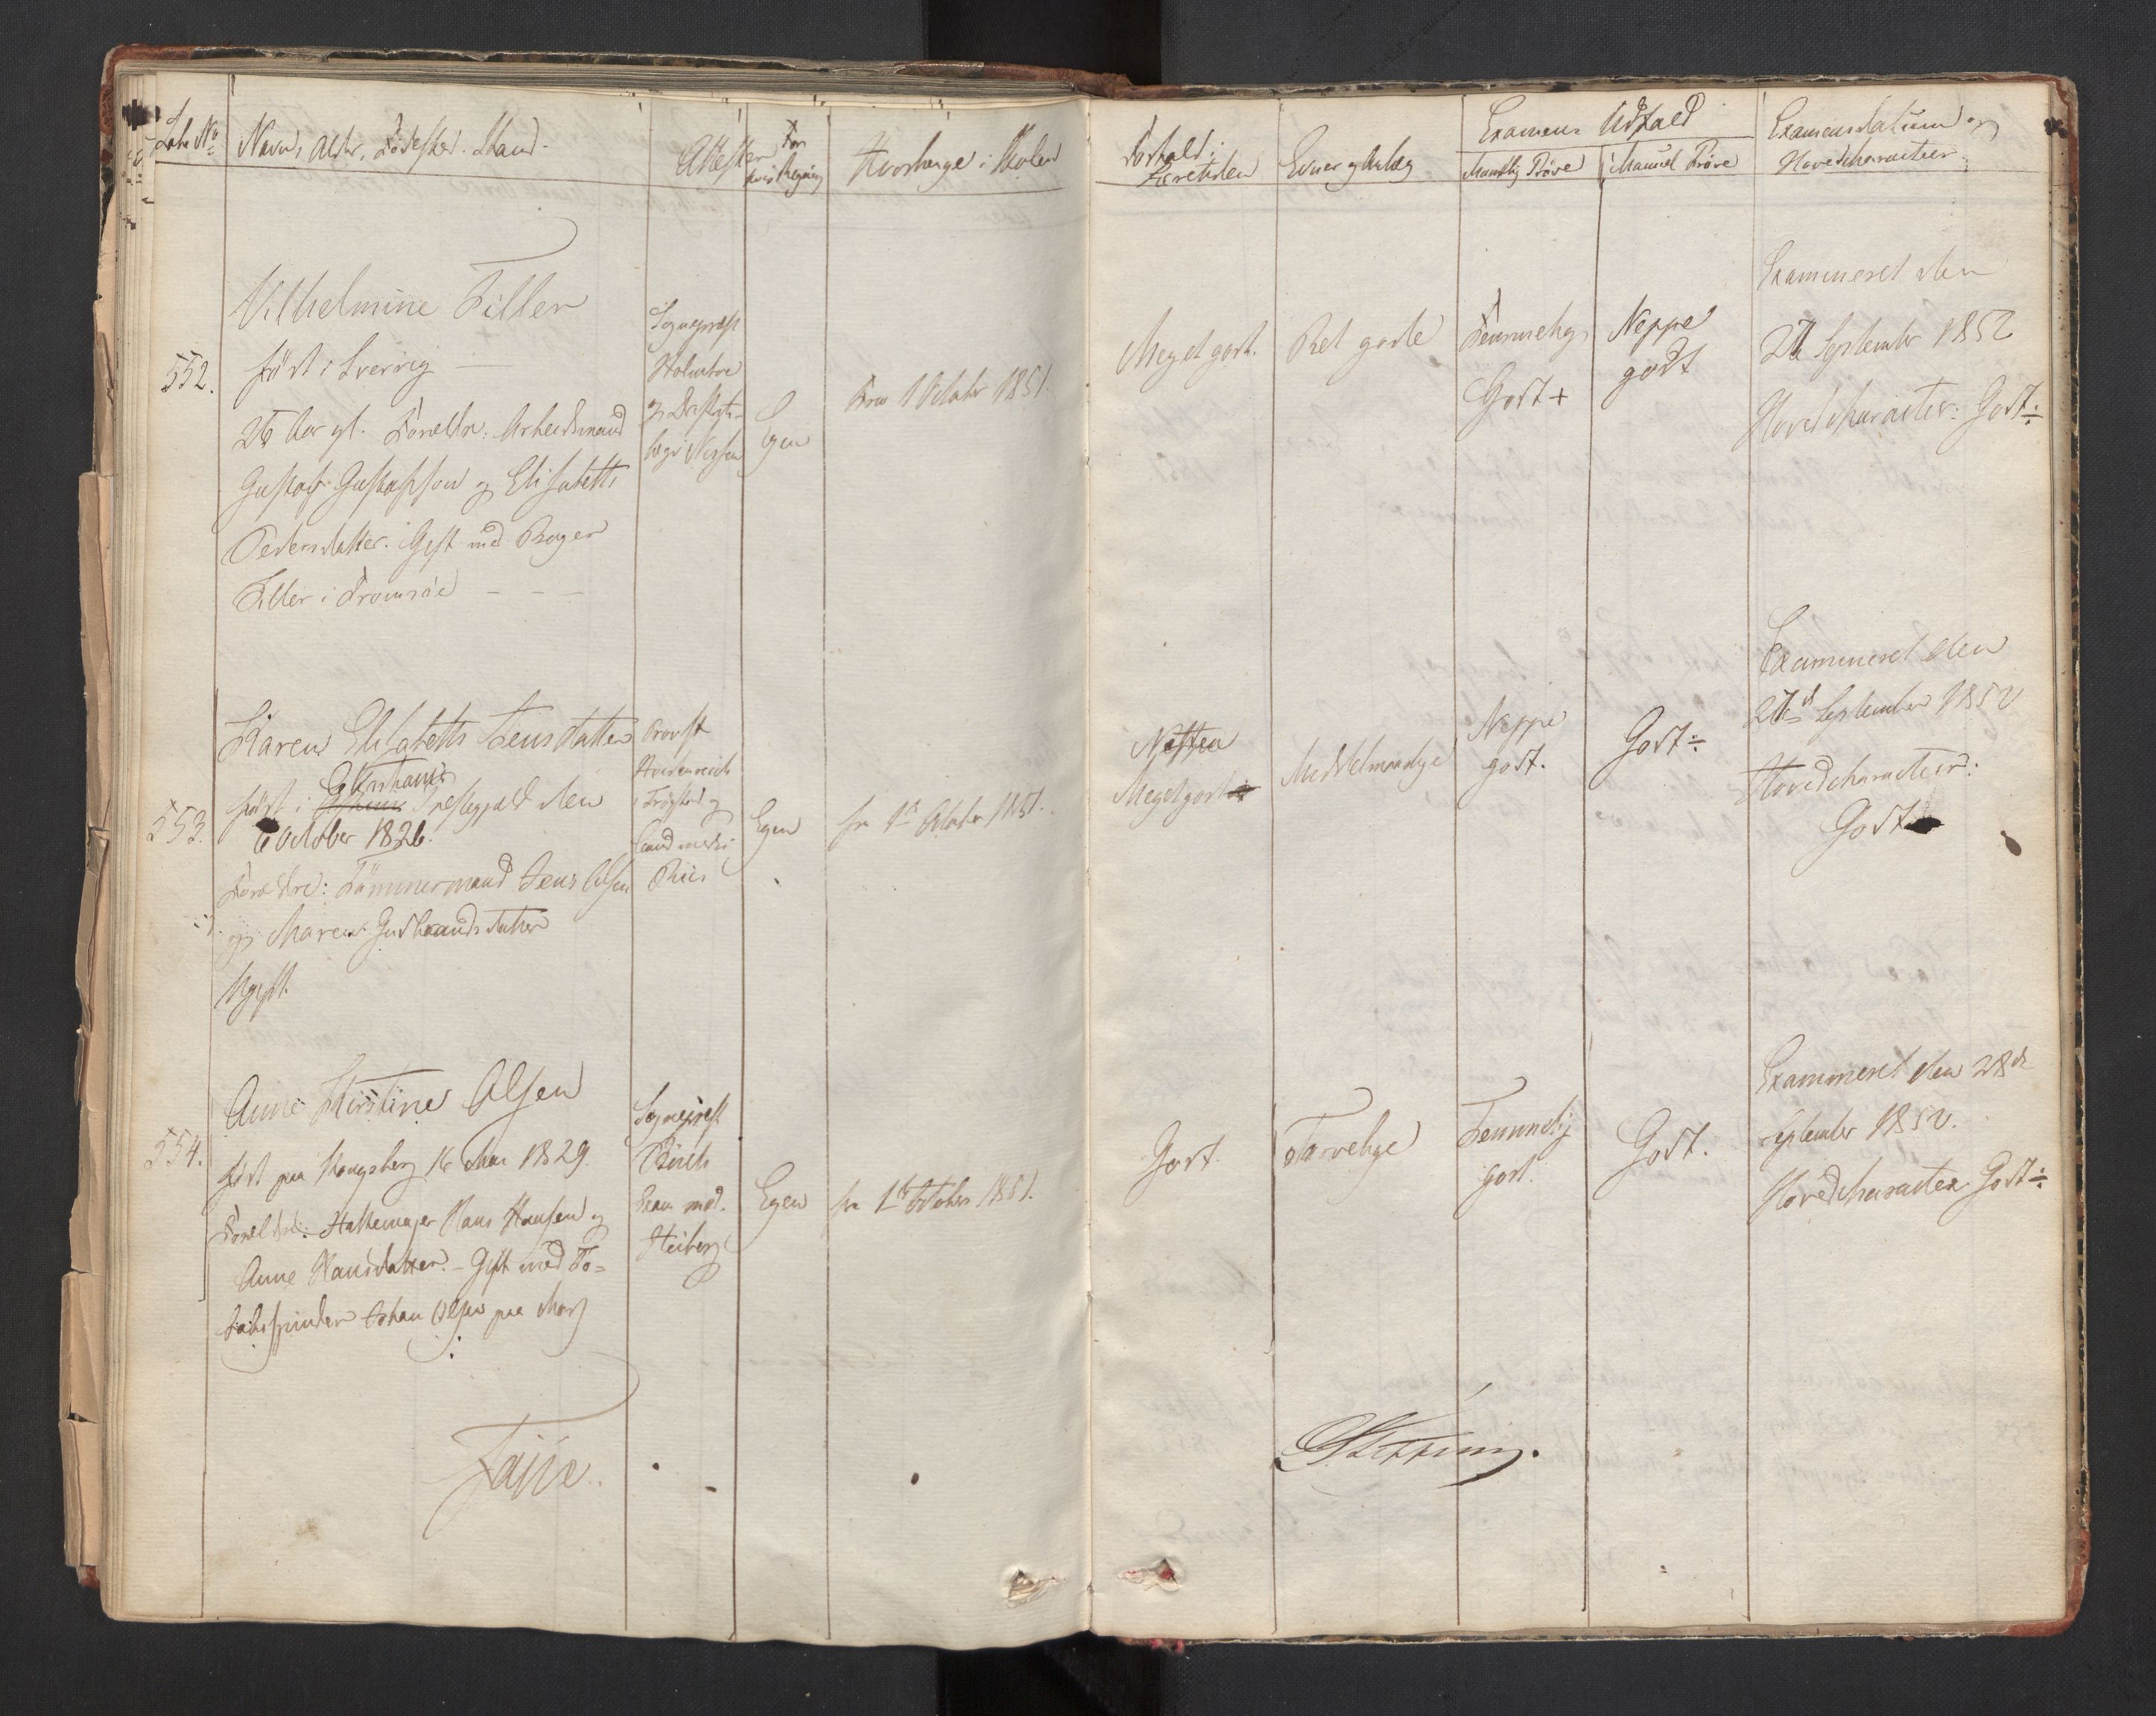 Løbe No
Navn, Alder, Fødested. Stand.
Attester
For hvis Regning
Hvorlænge i Skolen
Forhold i Læretiden
Evner og Anlæg
Examens Udfald
Mundtlig Prøve
Manuel Prøve
Examensdatum og
Hovedcharacteer.
552.
Vilhelmine Filler
født i Sverrig
26 Aar gl. Forældre: Arbeidsmand
Gustaf Gustafson og Elisabeth
Pedersdatter. Gift med Roger
Filler i Tromsøe
Sognepræst
Holmboe
og Distrikts-
læge Nissen
Egen
Fra 1 Octobr 1851.
Meget godt.
Ret gode
Temmelig
Godt +
Neppe
godt
Examineret den
27 September 1852
Hovedcharacter: Godt ÷
553.
Karen Elisabeth Jensdatter
født i Præstegjæld den
6 October 1826.
Forældre: Tømmermand Jens Olsen
og Maren Gudbrandsdatter
Ugift.
Provst
i Trøgstad og
Cand medi
Riis
Egen
fra 1ste Octobr 1851.
Meget godt
Middelmaadige
Neppe
godt.
Godt ÷
Examineret den
27de September 1852
Hovedcharacteer:
Godt
554.
Anne Kirstine Olsen
født paa Kongsberg 16 Mai 1829.
Forældre: Hattemager Hans Hansen og
Anne Hansdatter. - Gift med To=
baksspinder Johan Olsen paa
Sognepræst
Exam med.
Heiberg
Egen
fra 1ste October 1851.
Godt.
Tarvelige
Temmelig
godt.
Godt.
Examineret den 28de
September 1852.
Hovedcharacter Godt ÷
Faye.
Stetting.